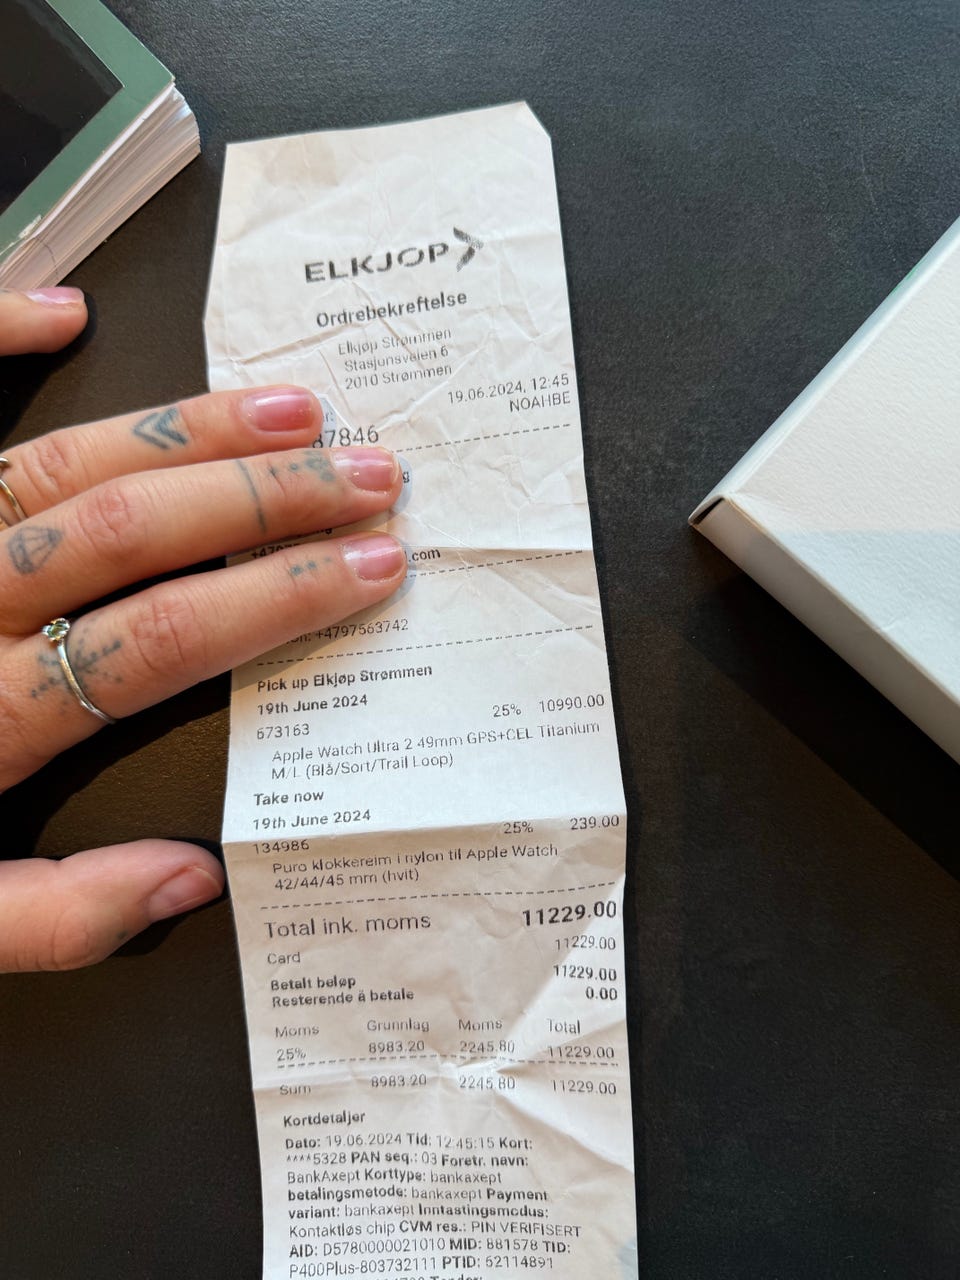 ELKJØP
Ordrebekreftelse
Elkjøp Strømmen
Stasjonsveien 6
2010 Strømmen
19.06.2024, 12:45
NOAHBE
87846
.com
+4797563742
Pick up Elkjøp Strømmen
19th June 2024
673163 25% 10990.00
Apple Watch Ultra 2 49mm GPS+CEL Titanium
M/L (Blå/Sort/Trail Loop)
Take now
19th June 2024
134986 25% 239.00
Puro klokkereim i nylon til Apple Watch
42/44/45 mm (hvit)
Total ink. moms 11229.00
Card 11229.00
Betalt beløp 11229.00
Resterende å betale 0.00
Moms Grunnlag Moms Total
25% 8983.20 2245.80 11229.00
Sum 8983.20 2245.80 11229.00
Kortdetaljer
Dato: 19.06.2024 Tid: 12:45:15 Kort:
****5328 PAN seq.: 03 Foretr. navn:
BankAxept Korttype: bankaxept
betalingsmetode: bankaxept Payment
variant: bankaxept Inntastingsmodus:
Kontaktløs chip CVM res.: PIN VERIFISERT
AID: D5780000021010 MID: 881578 TID:
P400Plus-803732111 PTID: 52114891